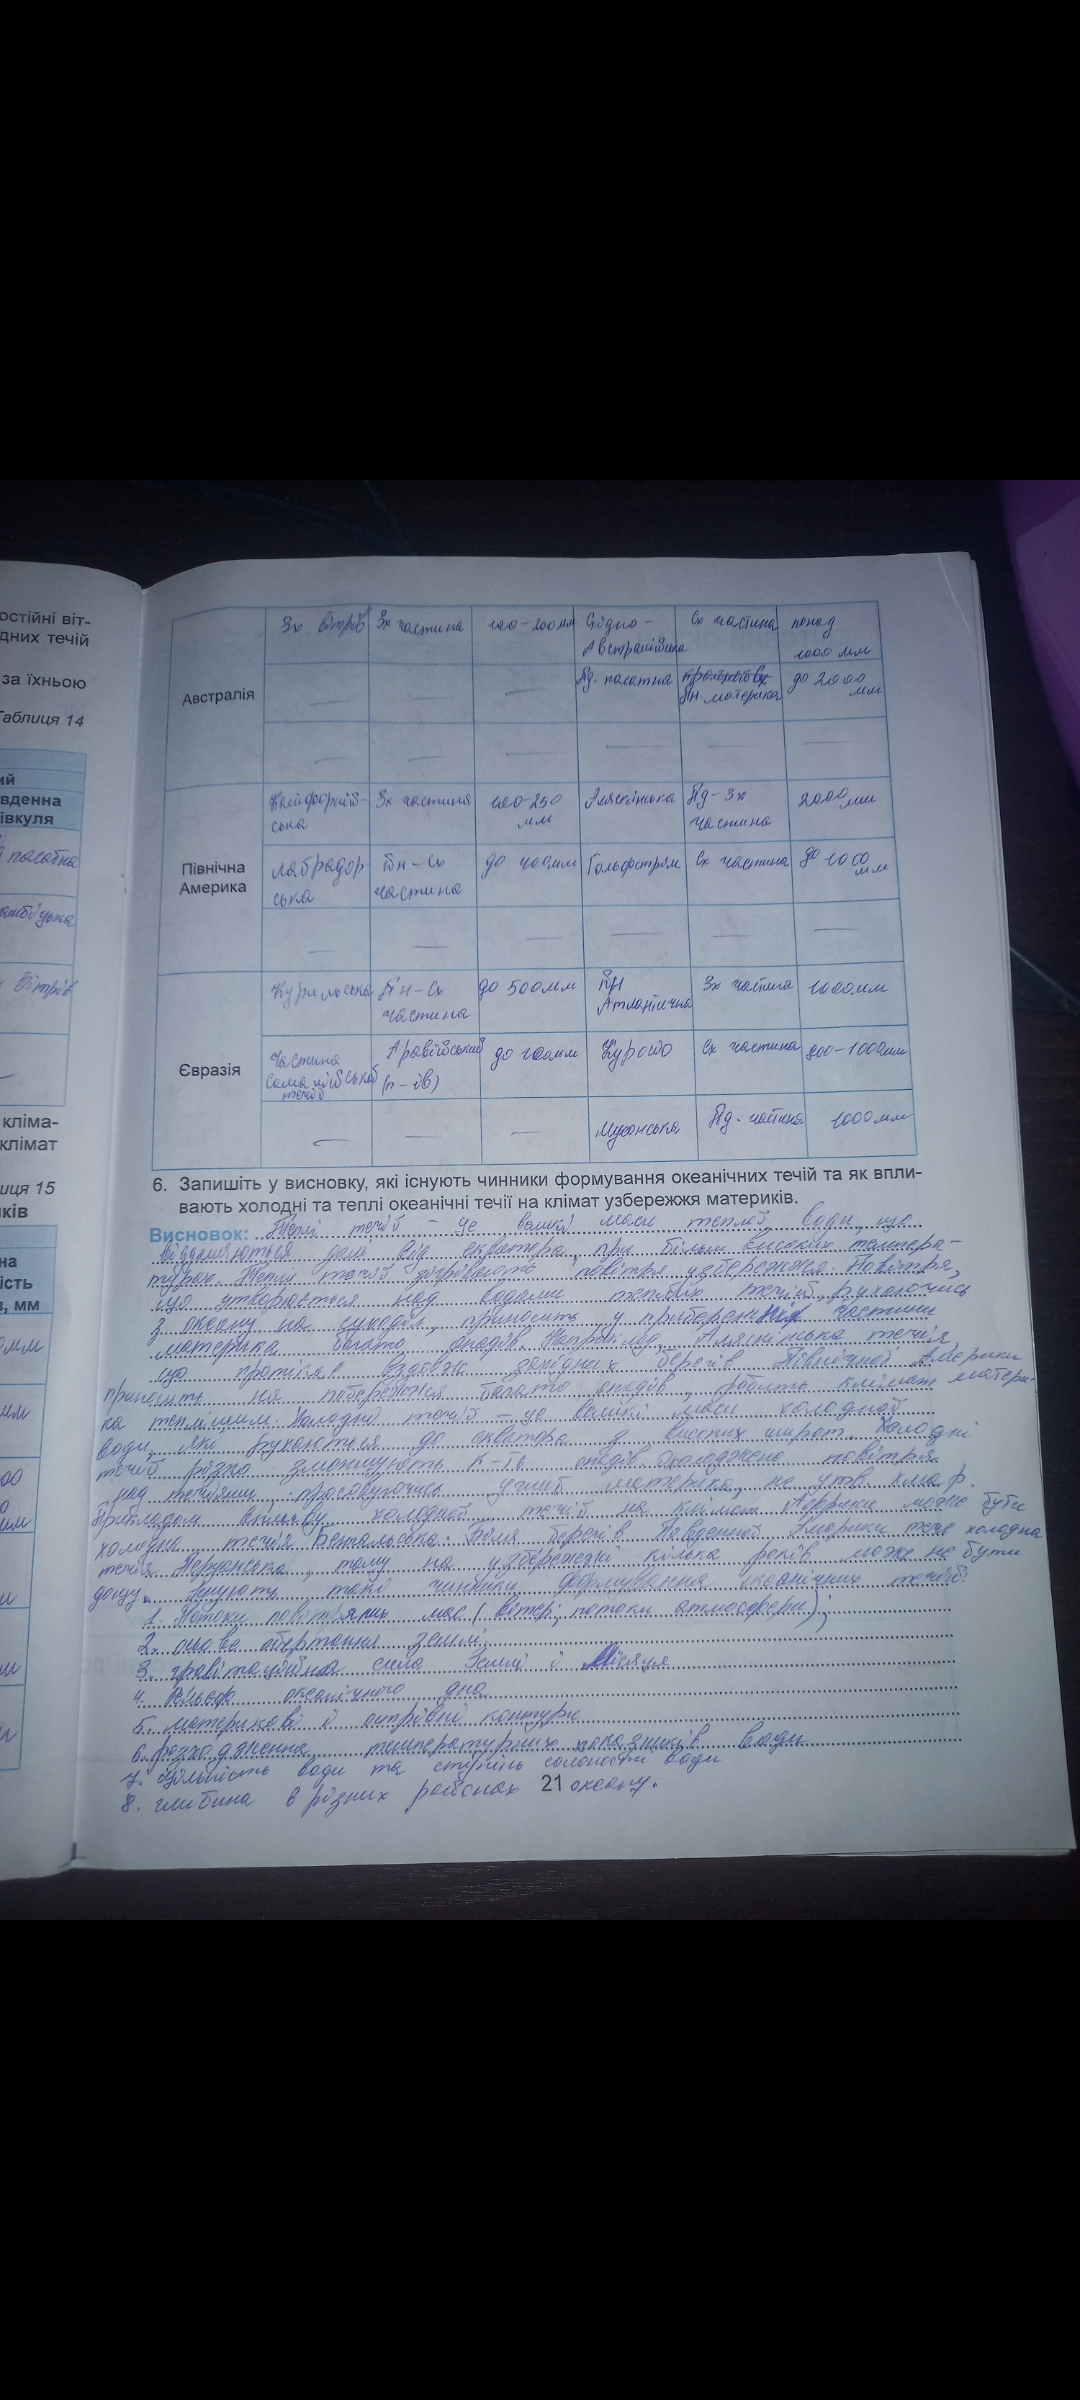 остійні віт-
дних течій
за їхньою
Таблиця 14
ий
вденна
івкуля
пасатна
вітрів
кліма-
клімат
иця 15
ків
на
кість
в, мм
Австралія
Зх вітрів Зх частина 100-200мм Східно-Австралійська Сх частина понад 1000 мм
Пд. пасатна Пн. материка до 2000 мм
Північна Америка
Каліфорнійська Зх частина 100-250 мм Аляскинська Пд-Зх частина 2000 мм
Лабрадорська Пн-Сх частина до 400мм Гольфстрім Сх частина до 1000 мм
Євразія
Курильська Пн-Сх частина до 500мм Пн Атлантична Зх частина 1000мм
Частина Сомалійської течії Аравійський (п-ів) до 100мм Куросіо Сх частина 800-1000мм
Мусонська Пд. частина 1000мм
6. Запишіть у висновку, які існують чинники формування океанічних течій та як впли-
вають холодні та теплі океанічні течії на клімат узбережжя материків.
Висновок: Теплі течії - це великі маси теплої води, що
віддаляються далі від екватора, при більш високих темпера-
турах. Теплі течії зігрівають повітря узбережжя. Повітря,
що утворюється над водами теплих течій, рухаючись
з океану на суходіл, приносить у прибережні частини
материка багато опадів. Наприклад, Аляскинська течія,
що протікає вздовж західних берегів Північної Америки
приносить на побережжя багато опадів, робить клімат матери-
ка теплішим. Холодні течії - це великі маси холодної
води, які рухаються до екватора з високих широт. Холодні
течії різко зменшують к-ть опадів. охолоджене повітря
над течіями, просовуючись углиб материка, не утв. хмар.
Прикладом впливу холодної течії на клімат Африки може бути
холодна течія Бенгальська. Біля берегів Південної Америки тече холодна
течія Перуанська, тому на узбережжі кілька років може не бути
дощу. Існують такі чинники формування океанічних течій:
1. Потоки повітряних мас (вітер; потоки атмосфери);
2. обертання землі;
3. гравітаційна сила Землі і Місяця
4. Рельєф океанічного дна
5. материкові і острівні контури
6. розходження температурних показників води
7. щільність води та ступінь солоності води
8. глибина в різних районах океану.
21